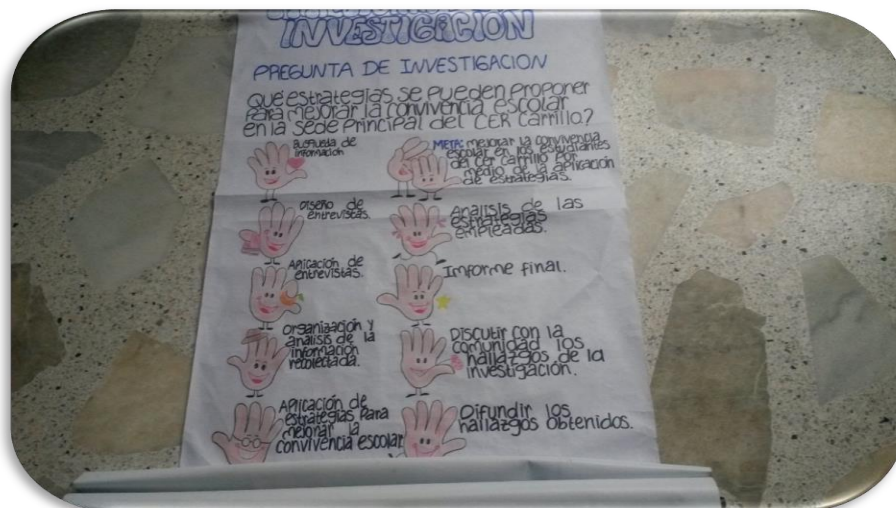 INVESTIGACIÓN
PREGUNTA DE INVESTIGACION
Qué estrategias se pueden proponer
para mejorar la convivencia escolar
en la sede principal del CER Carrillo?
Busqueda de
información
Diseño de
entrevistas.
Aplicación de
entrevistas.
organización y
análisis de la
información
recolectada.
Aplicación de
estrategias para
mejorar la
convivencia escolar
META: mejorar la convivencia
escolar en los estudiantes
del cer carrillo por
medio de la aplicación
de estrategias.
Análisis de las
estrategias
empleadas.
Informe final.
Discutir con la
comunidad los
hallazgos de la
investigación.
Difundir los
hallazgos obtenidos.